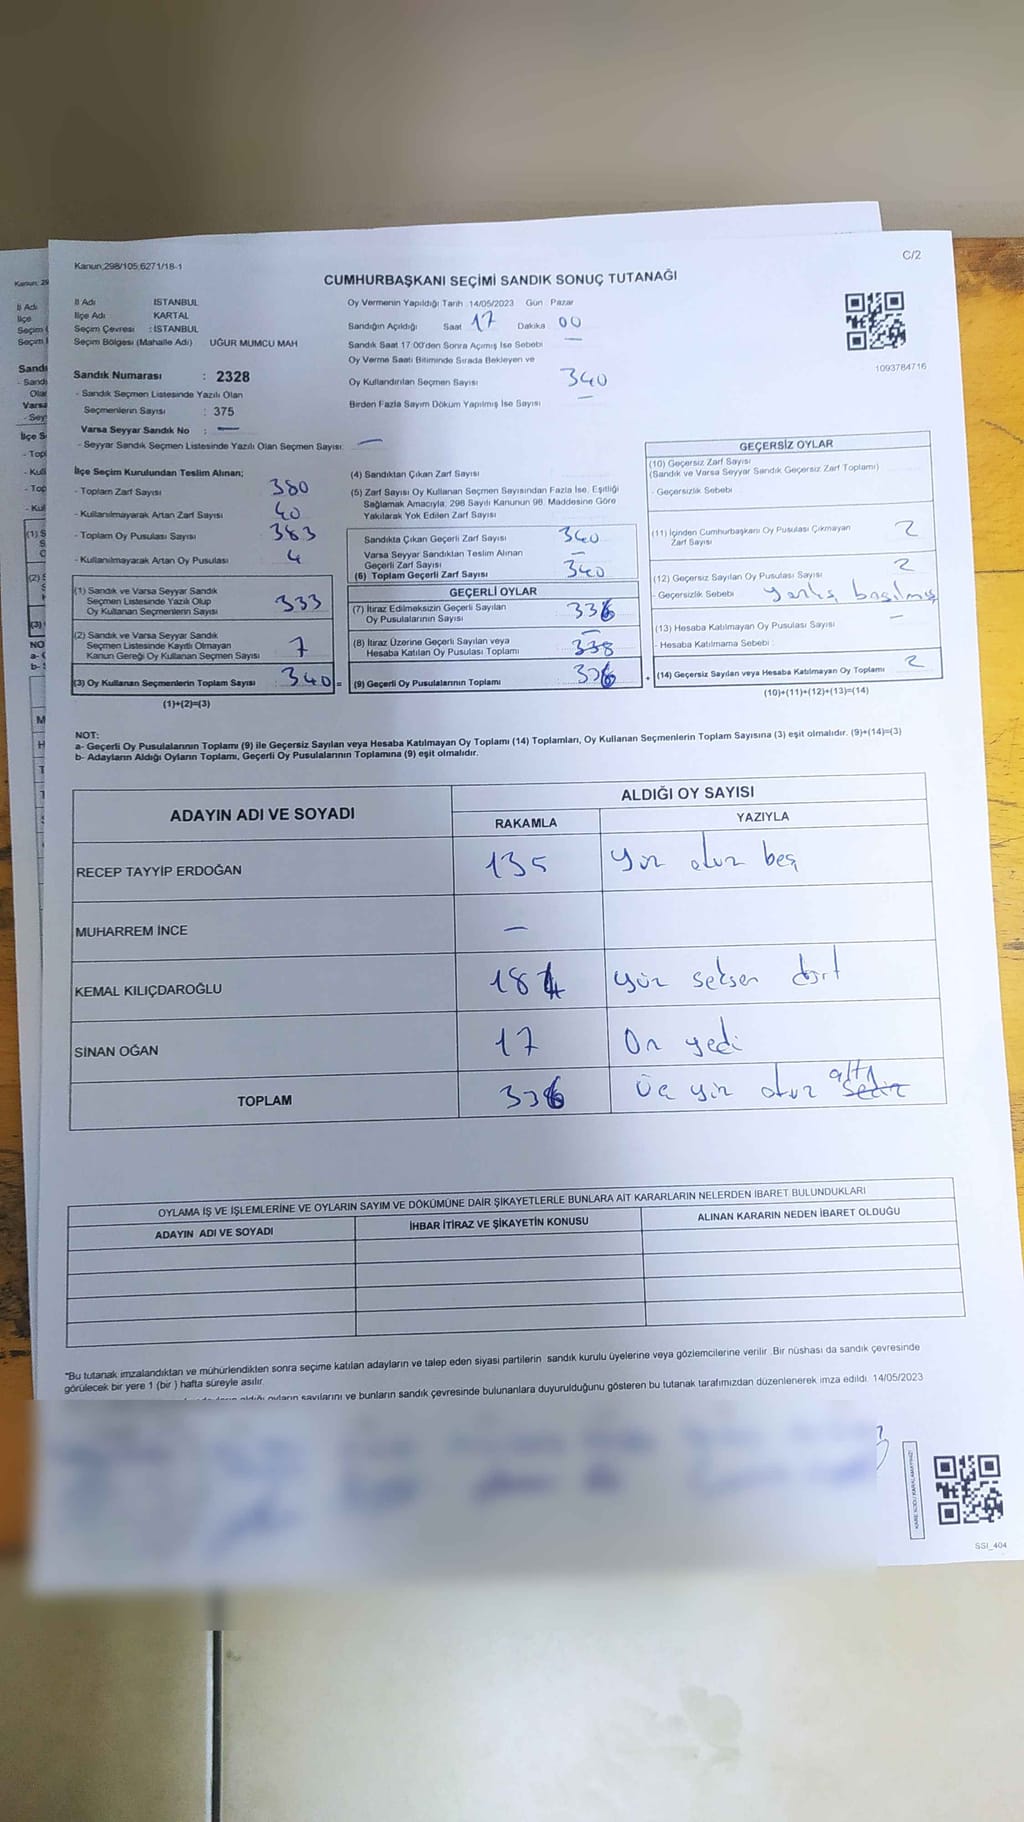 Kanun;298/105;6271/18-1
C/2
CUMHURBAŞKANI SEÇİMİ SANDIK SONUÇ TUTANAĞI
İl Adı ISTANBUL
İlçe Adı KARTAL
Seçim Çevresi : İSTANBUL
Seçim Bölgesi (Mahalle Adı) UĞUR MUMCU MAH
Sandık Numarası : 2328
- Sandık Seçmen Listesinde Yazılı Olan
Seçmenlerin Sayısı : 375
Varsa Seyyar Sandık No : —
- Seyyar Sandık Seçmen Listesinde Yazılı Olan Seçmen Sayısı: —
Oy Vermenin Yapıldığı Tarih :14/05/2023 Gün : Pazar
Sandığın Açıldığı Saat 17 Dakika 00
Sandık Saat 17:00'den Sonra Açımış İse Sebebi —
Oy Verme Saati Bitiminde Sırada Bekleyen ve
Oy Kullandırılan Seçmen Sayısı 340
Birden Fazla Sayım Döküm Yapılmış İse Sayısı —
1093784716
İlçe Seçim Kurulundan Teslim Alınan;
- Toplam Zarf Sayısı 380
- Kullanılmayarak Artan Zarf Sayısı 40
- Toplam Oy Pusulası Sayısı 383
- Kullanılmayarak Artan Oy Pusulası 4
(1) Sandık ve Varsa Seyyar Sandık
Seçmen Listesinde Yazılı Olup
Oy Kullanan Seçmenlerin Sayısı 333
(2) Sandık ve Varsa Seyyar Sandık
Seçmen Listesinde Kayıtlı Olmayan
Kanun Gereği Oy Kullanan Seçmen Sayısı 7
(3) Oy Kullanan Seçmenlerin Toplam Sayısı 340 =
(1)+(2)=(3)
(4) Sandıktan Çıkan Zarf Sayısı
(5) Zarf Sayısı Oy Kullanan Seçmen Sayısından Fazla İse, Eşitliği
Sağlamak Amacıyla; 298 Sayılı Kanunun 98. Maddesine Göre
Yakılarak Yok Edilen Zarf Sayısı
Sandıkta Çıkan Geçerli Zarf Sayısı 340
Varsa Seyyar Sandıktan Teslim Alınan
Geçerli Zarf Sayısı —
(6) Toplam Geçerli Zarf Sayısı 340
GEÇERLİ OYLAR
(7) İtiraz Edilmeksizin Geçerli Sayılan
Oy Pusulalarının Sayısı 336
(8) İtiraz Üzerine Geçerli Sayılan veya —
Hesaba Katılan Oy Pusulası Toplamı 338
(9) Geçerli Oy Pusulalarının Toplamı 336 +
GEÇERSİZ OYLAR
(10) Geçersiz Zarf Sayısı
(Sandık ve Varsa Seyyar Sandık Geçersiz Zarf Toplamı)
- Geçersizlik Sebebi
(11) İçinden Cumhurbaşkanı Oy Pusulası Çıkmayan
Zarf Sayısı 2
(12) Geçersiz Sayılan Oy Pusulası Sayısı 2
- Geçersizlik Sebebi yanlış basılmış
(13) Hesaba Katılmayan Oy Pusulası Sayısı —
- Hesaba Katılmama Sebebi
(14) Geçersiz Sayılan veya Hesaba Katılmayan Oy Toplamı 2
(10)+(11)+(12)+(13)=(14)
NOT:
a- Geçerli Oy Pusulalarının Toplamı (9) ile Geçersiz Sayılan veya Hesaba Katılmayan Oy Toplamı (14) Toplamları, Oy Kullanan Seçmenlerin Toplam Sayısına (3) eşit olmalıdır. (9)+(14)=(3)
b- Adayların Aldığı Oyların Toplamı, Geçerli Oy Pusulalarının Toplamına (9) eşit olmalıdır.
ADAYIN ADI VE SOYADI
ALDIĞI OY SAYISI
RAKAMLA YAZIYLA
RECEP TAYYİP ERDOĞAN 135 Yüz otuz beş
MUHARREM İNCE —
KEMAL KILIÇDAROĞLU 184 yüz seksen dört
SİNAN OĞAN 17 On yedi
TOPLAM 336 Üç yüz otuz altı
OYLAMA İŞ VE İŞLEMLERİNE VE OYLARIN SAYIM VE DÖKÜMÜNE DAİR ŞİKAYETLERLE BUNLARA AİT KARARLARIN NELERDEN İBARET BULUNDUKLARI
ADAYIN ADI VE SOYADI İHBAR İTİRAZ VE ŞİKAYETİN KONUSU ALINAN KARARIN NEDEN İBARET OLDUĞU
*Bu tutanak imzalandıktan ve mühürlendikten sonra seçime katılan adayların ve talep eden siyasi partilerin sandık kurulu üyelerine veya gözlemcilerine verilir. Bir nüshası da sandık çevresinde
görülecek bir yere 1 (bir ) hafta süreyle asılır.
aldığı oyların sayılarını ve bunların sandık çevresinde bulunanlara duyurulduğunu gösteren bu tutanak tarafımızdan düzenlenerek imza edildi. 14/05/2023
KARE KODU KARALAMAYINIZ!
SSI_404